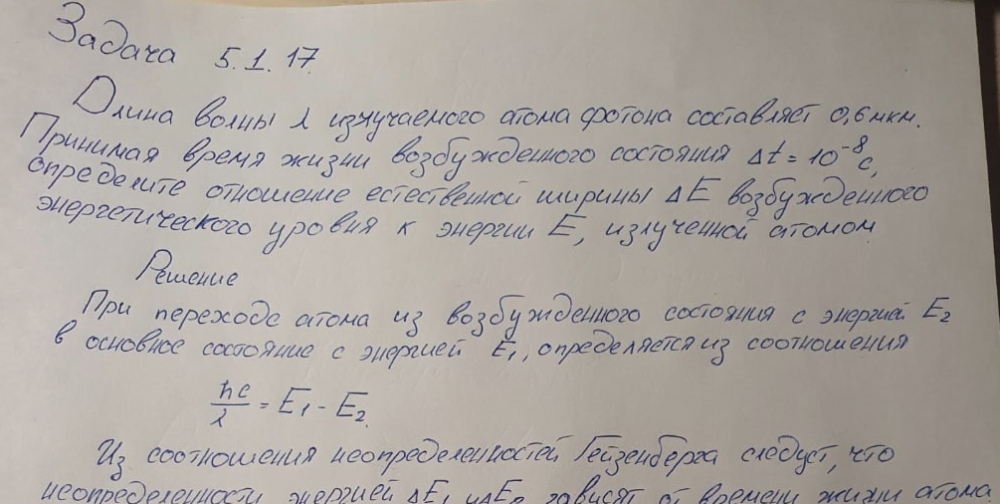 Задача 5.1.17.
Длина волны λ излучаемого атома фотона составляет 0,6 мкм.
Принимая время жизни возбужденного состояния Δt = 10⁻⁸ с,
определите отношение естественной ширины ΔE возбужденного
энергетического уровня к энергии E, излученной атомом
Решение
При переходе атома из возбужденного состояния с энергией E₂
в основное состояние с энергией E₁, определяется из соотношения
hc/λ = E₁ - E₂.
Из соотношения неопределенностей Гейзенберга следует, что
неопределенности энергией ΔE₁ и ΔE₂ зависят от времени жизни атома